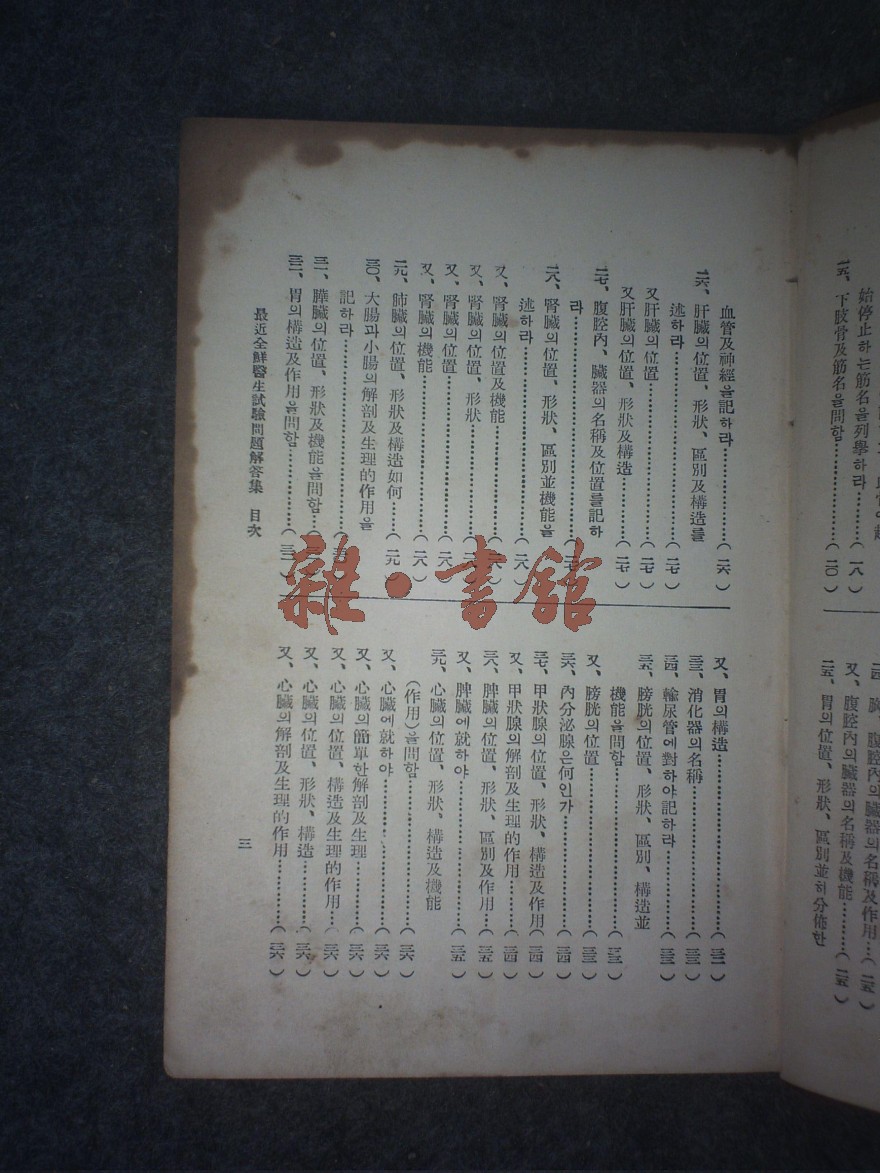 始停止하는筋名을列擧하라………(一八)
一五、下肢骨及筋名을問함…………(二〇)
又、腹腔內의臟器의名稱及機能………(二五)
二五、胃의位置、形狀、區別並히分佈한
血管及神經을記하라…………(二六)
二六、肝臟의位置、形狀、區別及構造를
述하라…………(二七)
又肝臟의位置…………(二七)
又肝臟의位置、形狀及構造………(二七)
二七、腹腔內、臟器의名稱及位置를記하
라…………
二八、腎臟의位置、形狀、區別並機能을
述하라…………(二八)
又、腎臟의位置及機能…………
又、腎臟의位置、形狀…………(二八)
又、腎臟의位置…………(二八)
又、腎臟의機能…………(二八)
二九、肺臟의位置、形狀及構造如何……(二九)
三〇、大腸과小腸의解剖及生理的作用을
記하라…………
三一、膵臟의位置、形狀及機能을問함……
三二、胃의構造及作用을問함…………
最近全鮮醫生試驗問題解答集 目次
又、胃의構造…………(三二)
三三、消化器의名稱…………(三三)
三四、輸尿管에對하야記하라………(三三)
三五、膀胱의位置、形狀、區別、構造並
機能을問함…………(三三)
又、膀胱의位置…………(三三)
三六、內分泌腺은何인가…………(三四)
三七、甲狀腺의位置、形狀、構造及作用(三四)
又、甲狀腺의解剖及生理的作用……(三四)
三八、脾臟의位置、形狀、區別及作用……(三五)
又、脾臟에就하야…………(三五)
三九、心臟의位置、形狀、構造及機能
(作用)을問함…………(三六)
又、心臟에就하야…………(三六)
又、心臟의簡單한解剖及生理………(三六)
又、心臟의位置、構造及生理的作用……(三六)
又、心臟의位置、形狀、構造………(三六)
又、心臟의解剖及生理的作用………(三六)
三
雜·書館